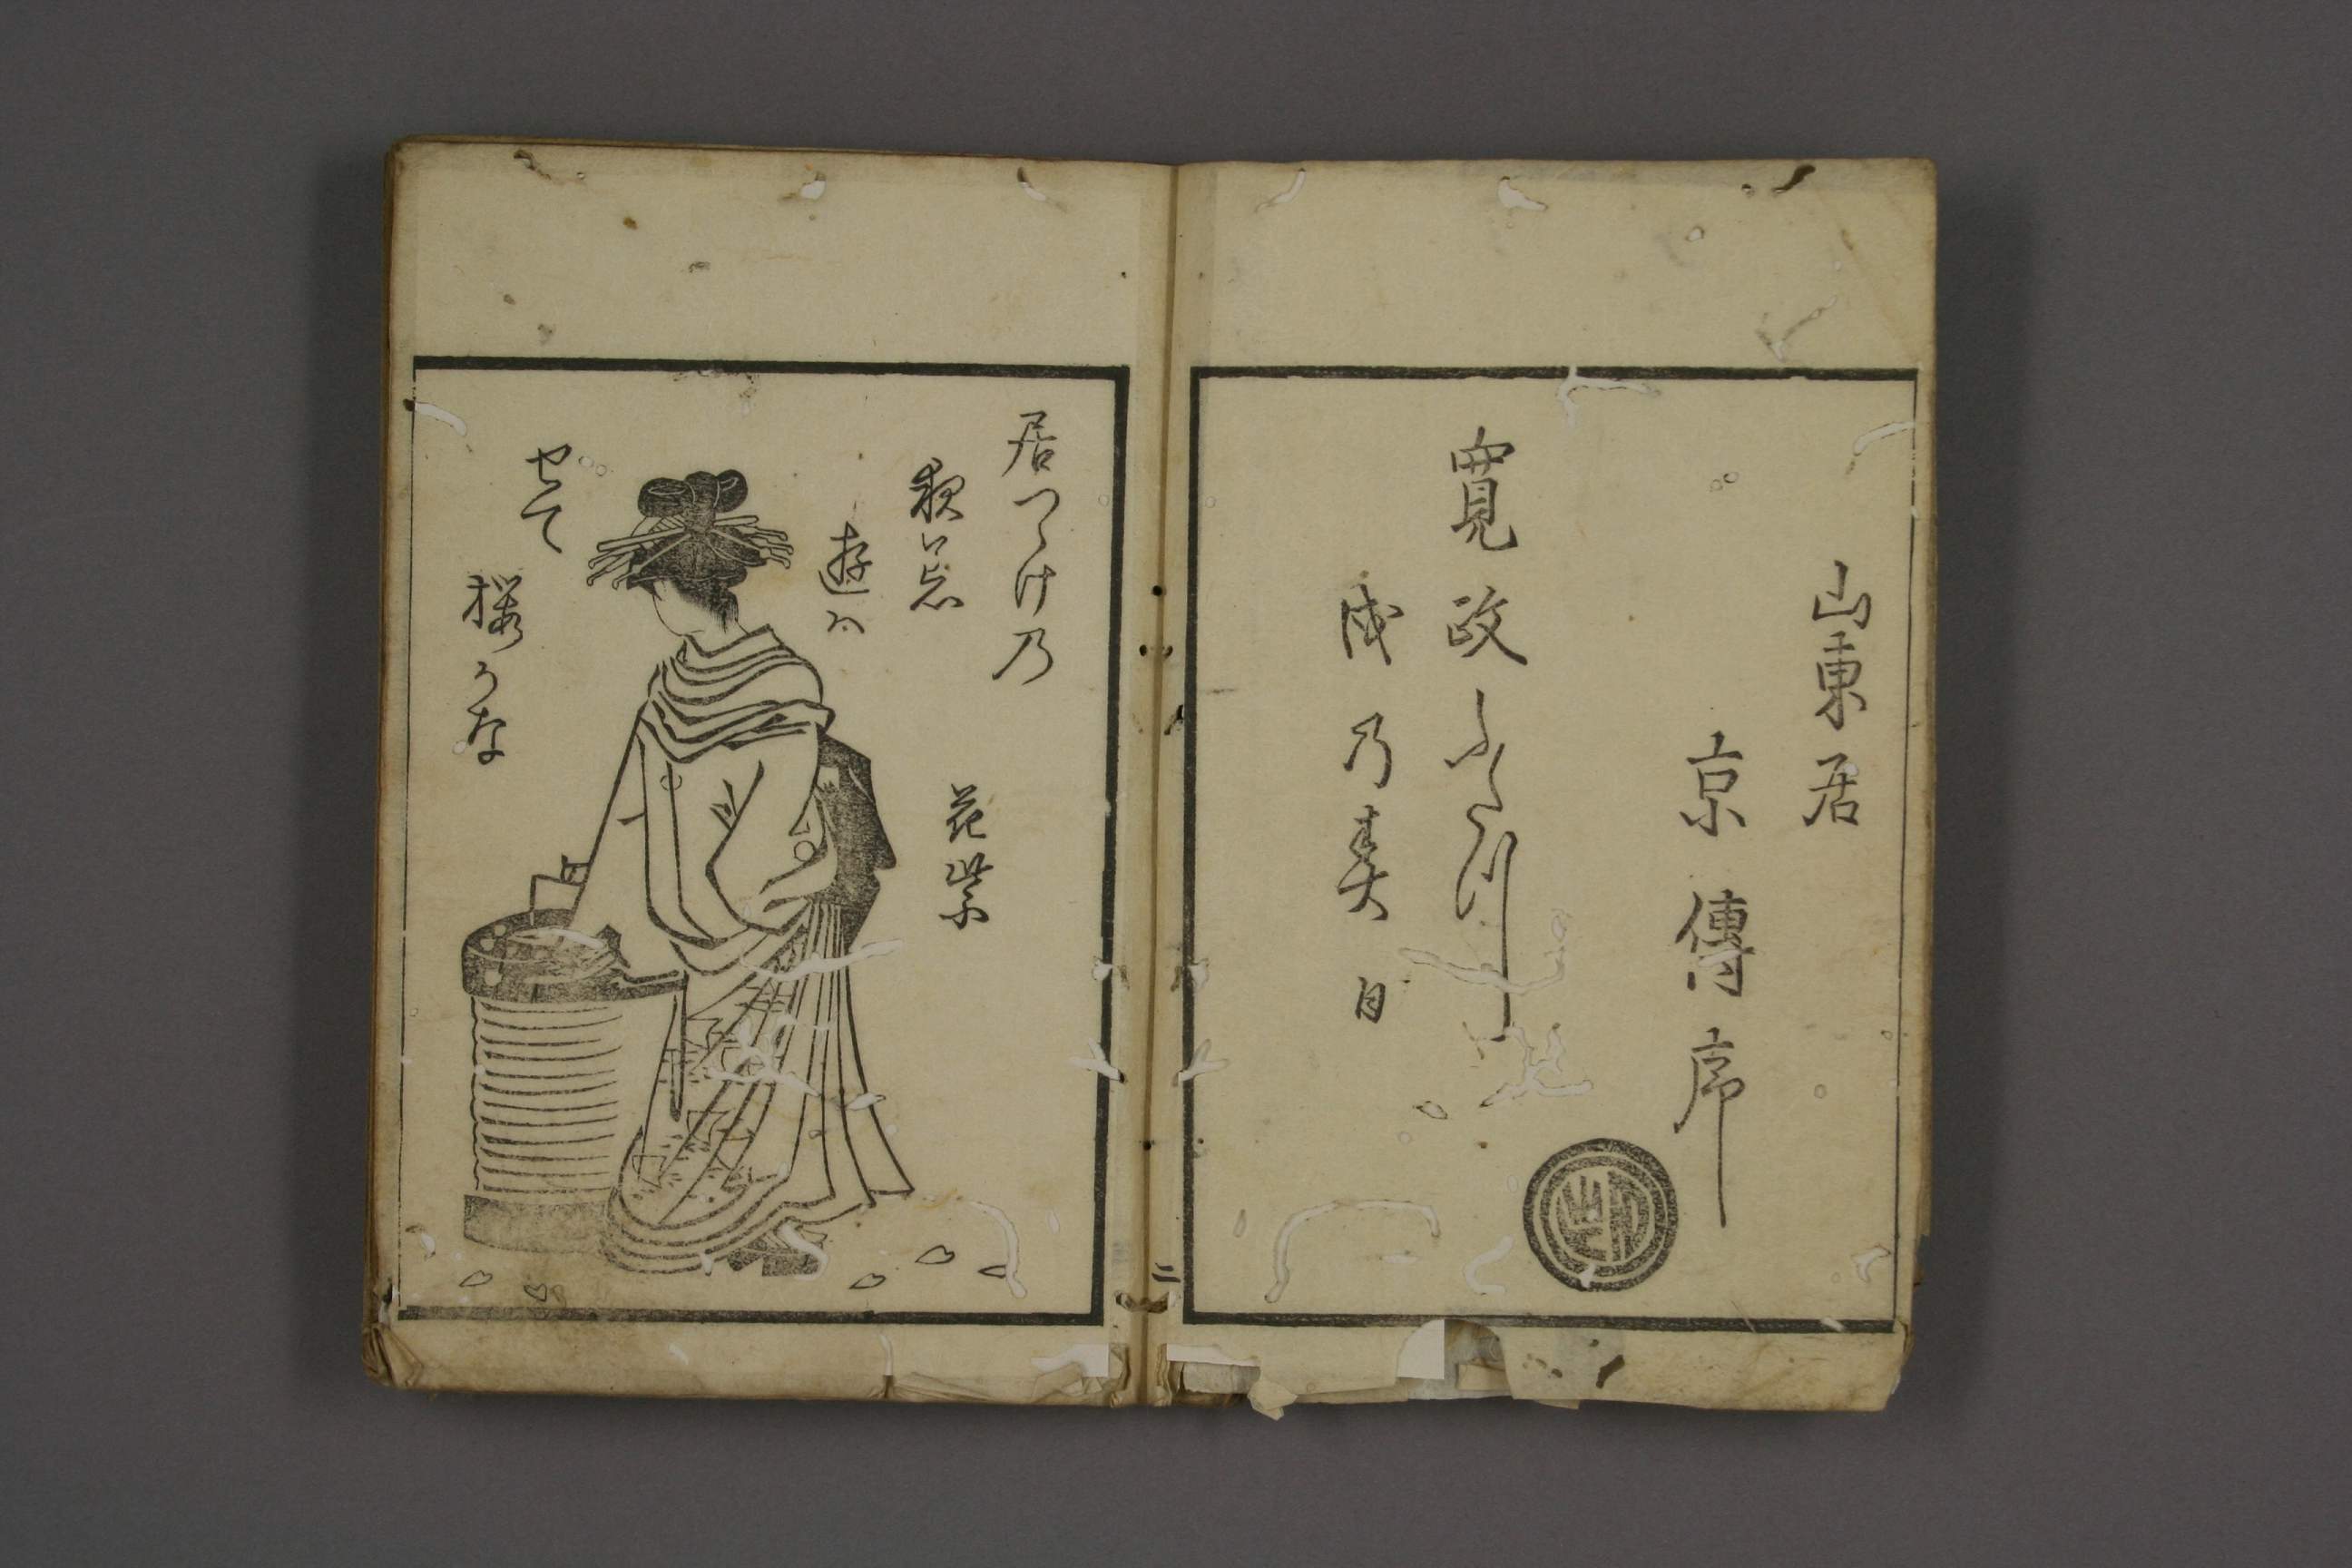 山東居
京傳序
寛政ふたつ
戌乃春日
居つゝけ乃
遊ハ
せて
桜かな
花紫
二